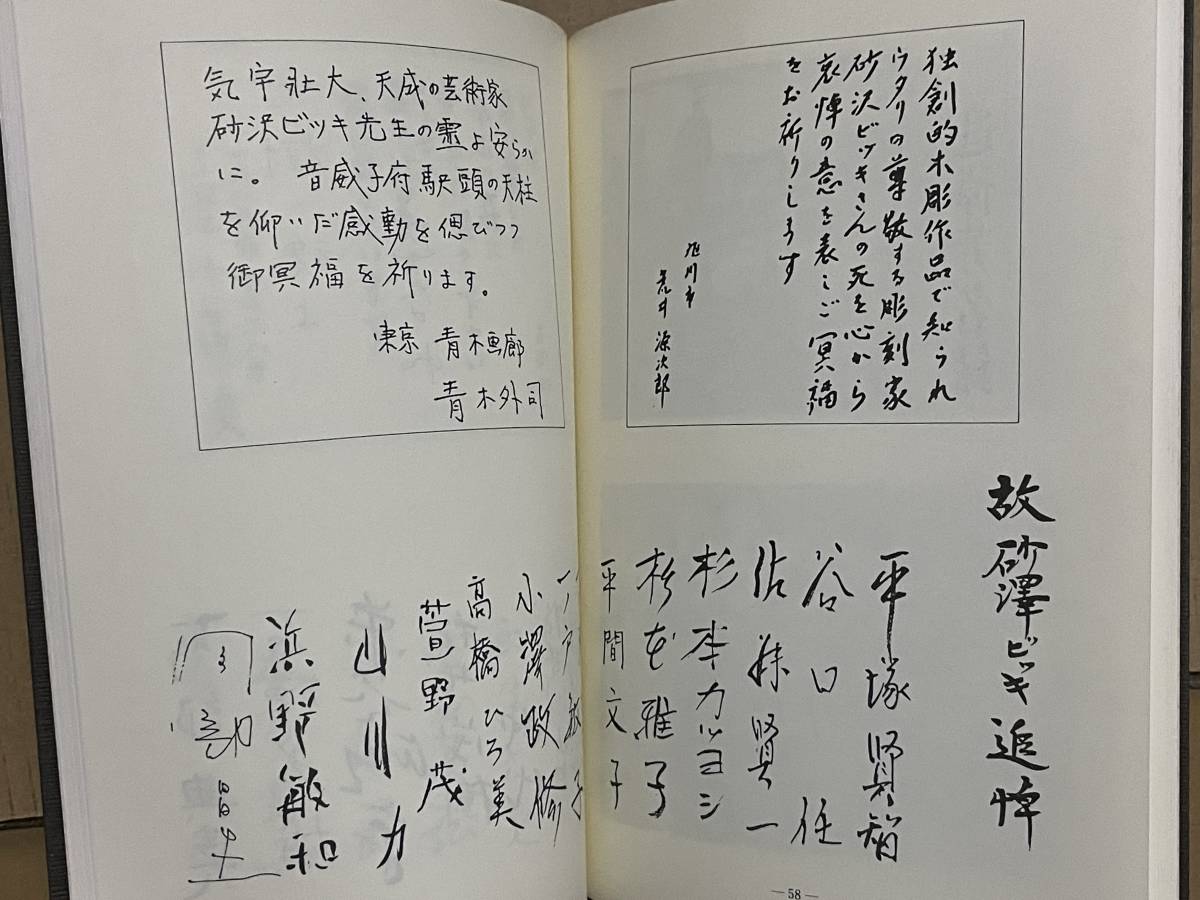 独創的木彫作品で知られ
ウタリの尊敬する彫刻家
砂沢ビッキさんの死を心から
哀悼の意を表しご冥福
をお祈りします
旭川市
荒井源次郎
故砂澤ビッキ追悼
平塚賢智
谷口任
佐藤賢一
杉本カツヨシ
雅子
平間文子
— 58 —
気宇壮大、天成の芸術家
砂沢ビッキ先生の霊よ安らか
に。音威子府駅頭の天柱
を仰いだ感動を偲びつつ
御冥福を祈ります。
東京 青木画廊
青木外司
小澤政修
高橋ひろ美
萱野茂
山川力
浜野敏和